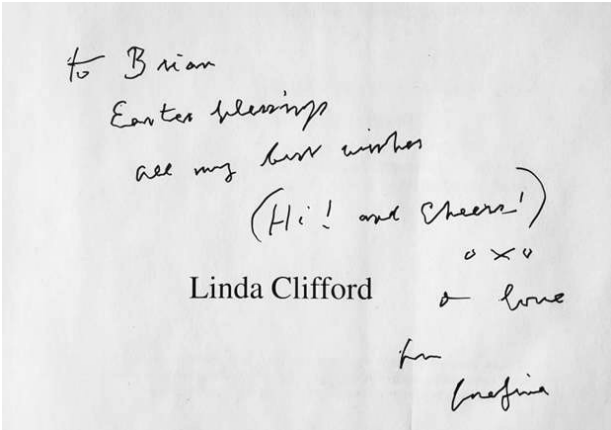 to Brian
Easter blessings
all my best wishes
(Hi! and Cheers!)
oxo
Linda Clifford
& love
from
Josefina